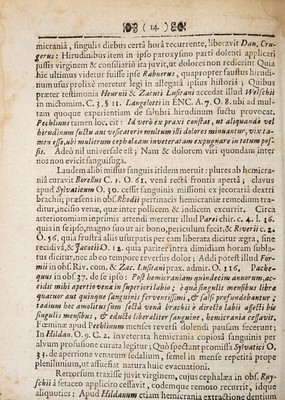 ( 14. )
micraniâ, singulis diebus certâ horâ recurrente, liberavit Dan. Cru-
gerus: Hirudinibus item in ipso paroxysmo parti dolenti applicari
jussis virginem & consiliario ita juvit, ut dolores non redierint. Quia
hic ultimus videtur fuisse ipse Rabnerus, quapropter faustus hirudi-
num usus prolixè meretur legi in allegatis ipsius historiis; Quibus
præter testimonia Heurnii & Zacuti Lusitani accedat illud Welschii
in mictomim. C. 3. § 11. Langelotti in ENC. A. 7. O. 8. ubi ad mul-
tam quoque experientiam de salubri hirudinum suctu provocat.
Pechlinus tamen loc. cit: Id verò ex praxi constat, ut aliquando vel
hirudinum suctu aut vesicatoriis multum illi dolores minuantur, vix ta-
men esse, ubi mulierum cephalæam inveteratam expugnare in totum pos-
sit. Adeò nil universale est; Nam & dolorem viri quondam inter
nos non evicit sanguisuga.
Laudem alibi missus sanguis itidem meruit: plures ab hemicra-
niâ curavit Borellus C. 1. O. 61. venâ rectâ frontis apertâ; clavus
apud Sylvaticum O. 30. cessit sanguinis missioni ex jecorariâ dextri
brachii; præsens in obs. Rhodii pertinacis hemicraniæ remedium tra-
ditur, inciso venæ, quæ inter pollicem & indicem excurrit. Circa
arteriotomiam inprimis attendi meretur illud Paræi chir. C. 4. l. 16.
quia in se ipso, magno suo ut air bono, periculum fecit; & Riverii c. 2.
O. 56. quia frustrà aliis usurpatis per eam liberata dicitur ægra, sine
recidiva, & Tacotii O. 12. quia pariter intra dimidium horam subla-
tus dicitur, nec ab eo tempore reversus dolor; Addi potest illud For-
mii in obs. Riv. com. & Zac. Lusitani prax. admir. O. 116. Pache-
quus in obs 37. de se ipso: Post hemicraniam quindecim annorum, ac-
cidit mihi apertio venæ in superiori labio; è quâ singulis mensibus libræ
quatuor aut quinque sanguinis ferventissimi, & falsi profundebantur;
tedium hoc amolitus sum sectâ venâ brachii è directo labii affecti bis
singulis mensibus, & eductis libraliter sanguine, hemicrania cessavit.
Fœminæ apud Pechlinum menses reversi dolendi pausam fecerunt;
In Hildan. O. 9. C. 2. inveterata hemicrania copiosâ sanguinis per
alvum profusione curata legitur; Quò spectant promissa Sylvatici O.
33. de apertione venarum sedalium, semel in mense repetitâ prope
plenilunium, ut assuefiat natura huic evacuationi.
Retrorsum traxisse juvit virginem, cujus cephalæa in obs. Ruy-
schii à setaceo applicito cessavit, eodemque remoto recurrit, idque
aliquoties; Apud Hildanum etiam hemicrania extractione dentium